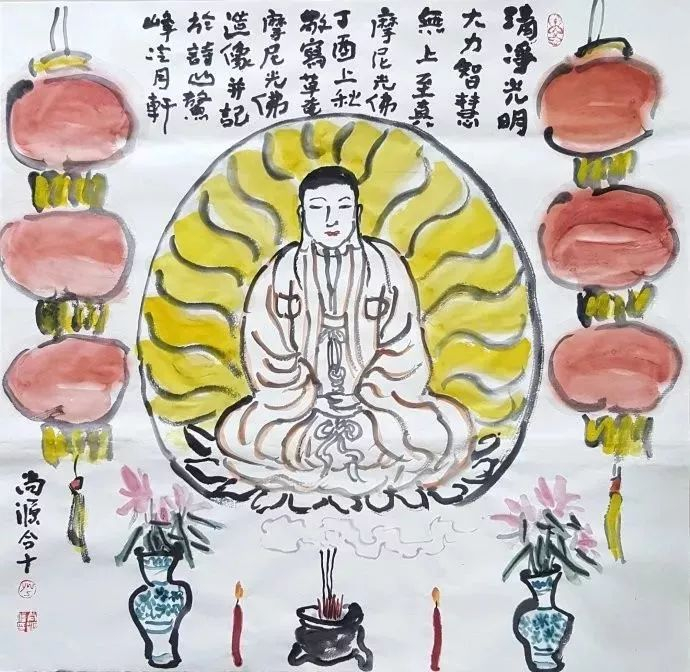 清淨光明
大力智慧
無上至真
摩尼光佛
丁酉上秋
敬寫草庵
摩尼光佛
造像并記
於詩山鰲
峰 月軒
尚源合十